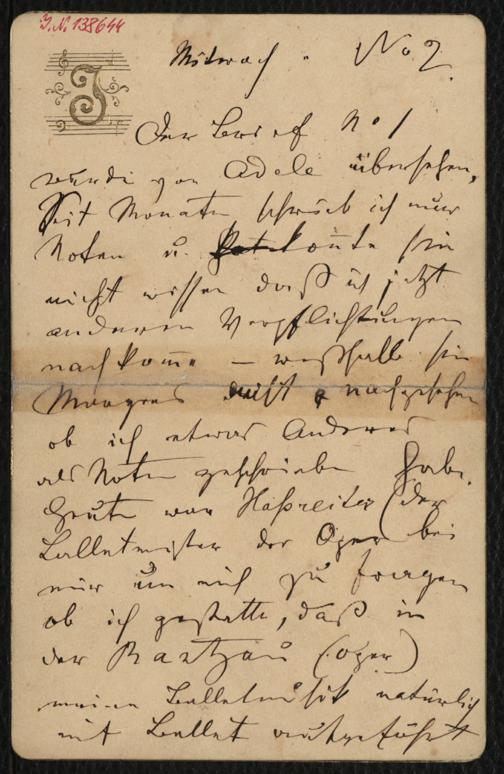 I.N. 138644
J
Mittwoch. No 2.
Der Brief No 1
wurde von Adele übersehen,
Seit Monaten schrieb ich nur
Noten u. konnte sie
nicht wissen daß ich jetzt
anderen Verpflichtungen
nachkomme — weßhalb sie
Morgens nicht nachgesehen
ob ich etwas Anderes
als Noten geschrieben habe.
Heute war Haßreiter (der
Balletmeister der Oper bei
mir um mich zu fragen
ob ich gestatte, daß in
der Rantzau (Oper)
meine Balletmusik natürlich
mit Ballet aufgeführt